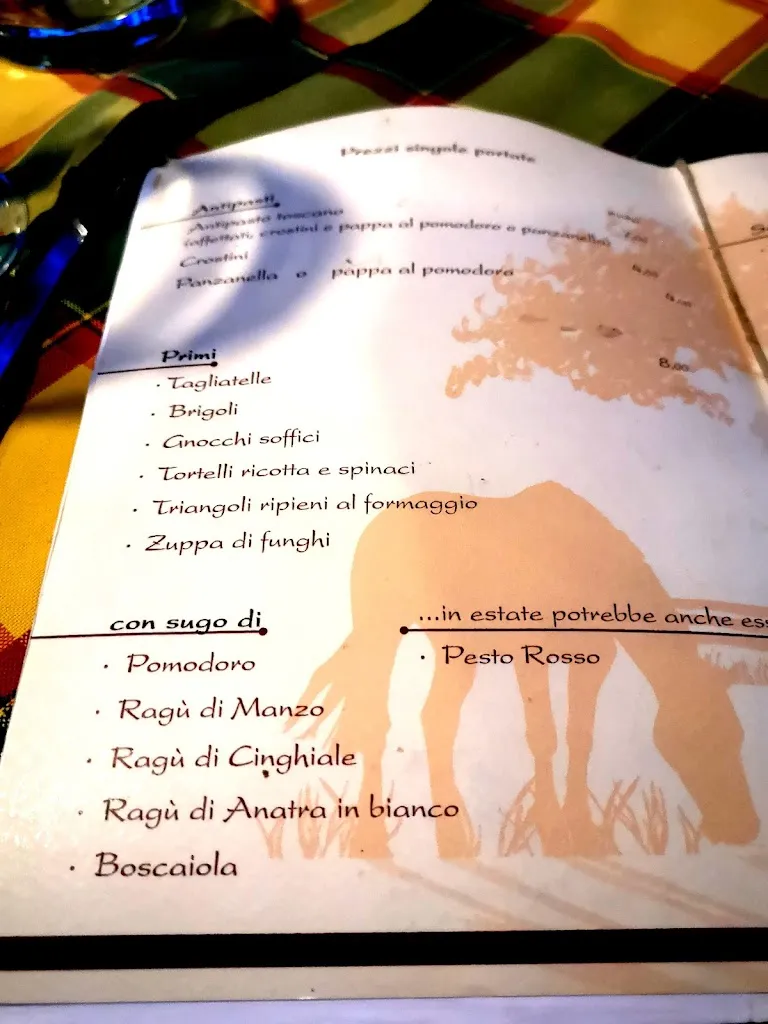 Prezzi singole portate
Antipasti
Antipasto toscano
(affettati, crostini e pappa al pomodoro o panzanella)
Crostini
Panzanella o pappa al pomodoro
Primi
8,00
· Tagliatelle
· Brigoli
· Gnocchi soffici
· Tortelli ricotta e spinaci
· Triangoli ripieni al formaggio
· Zuppa di funghi
con sugo di
· Pomodoro
· Ragù di Manzo
· Ragù di Cinghiale
· Ragù di Anatra in bianco
· Boscaiola
...in estate potrebbe anche ess
· Pesto Rosso